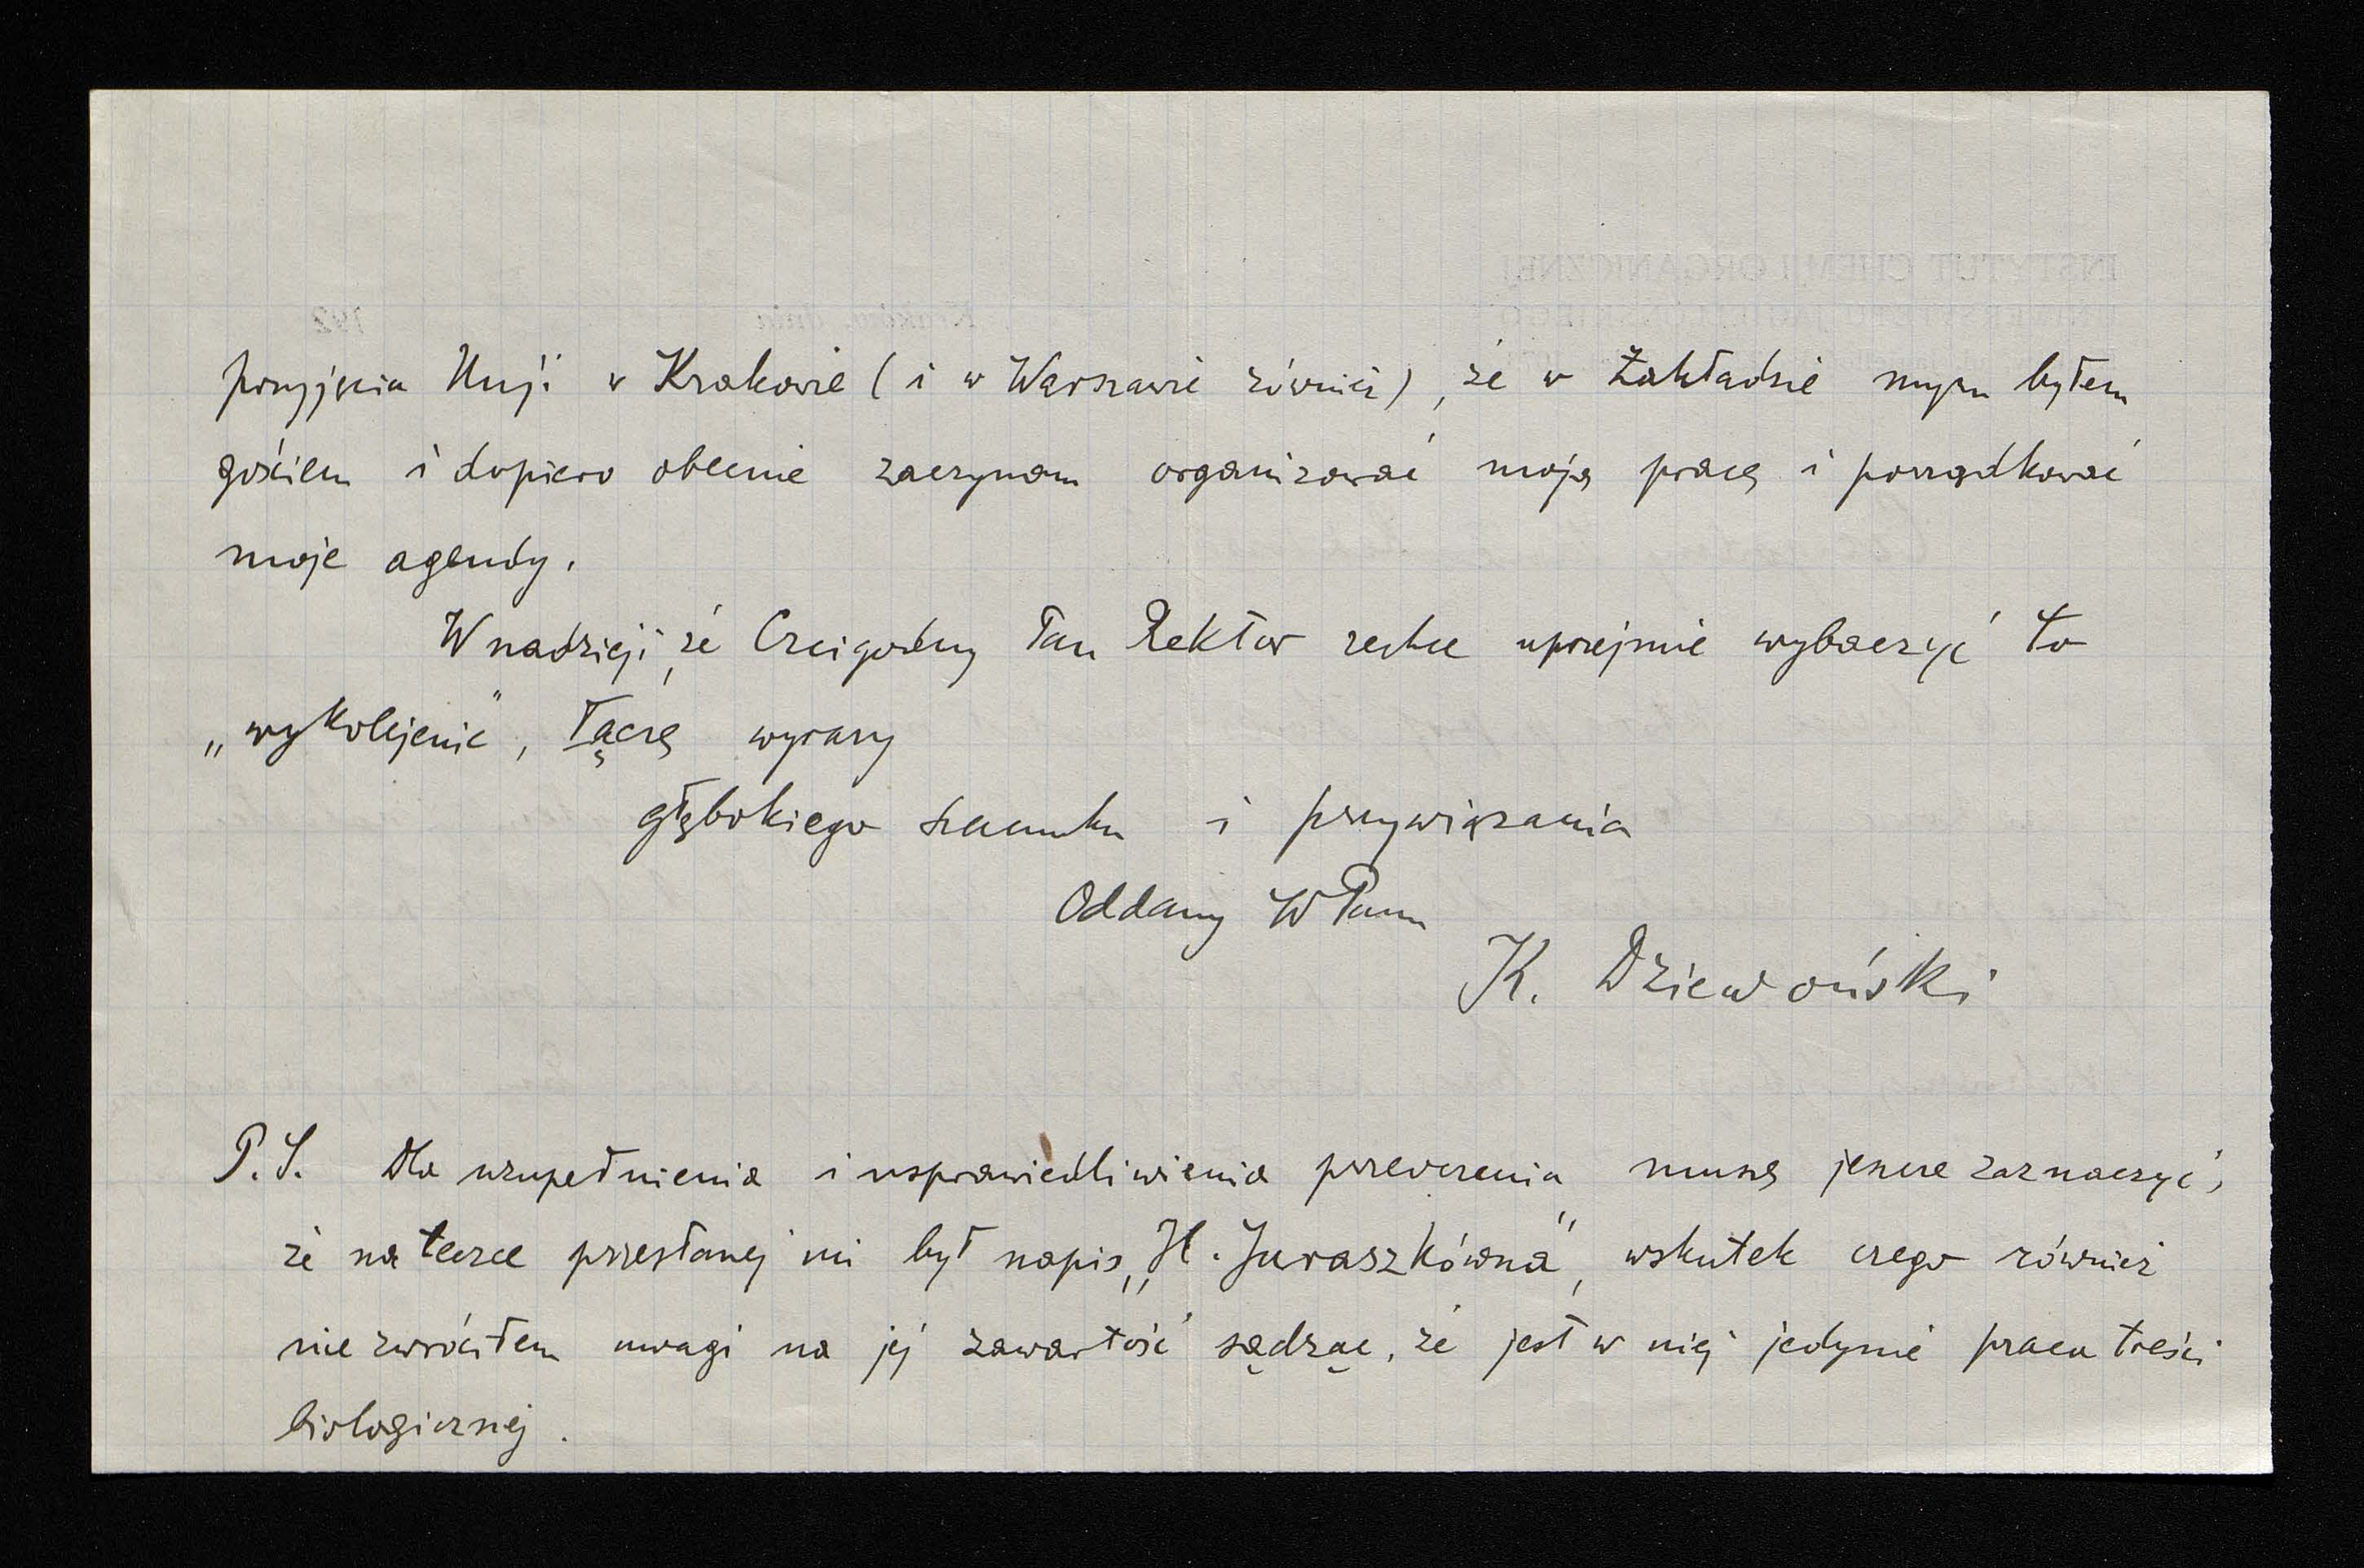 przyjęcia Unji w Krakowie (i w Warszawie również), że w Zakładzie mym byłem
gościem i dopiero obecnie zaczynam organizować moją pracę i porządkować
moje agendy.
W nadzieji, że Czcigodny Pan Rektor zechce uprzejmie wybaczyć to
„wykolejenie", łączę wyrazy
głębokiego szacunku i przywiązania
Oddany WPanu
K. Dziewoński
P.S. Dla uzupełnienia i usprawiedliwienia przeoczenia muszę jeszcze zaznaczyć,
że na teczce przesłanej mi był napis „H. Juraszkówna", wskutek czego również
nie zwróciłem uwagi na jej zawartość sądząc, że jest w niej jedynie praca treści
biologicznej.